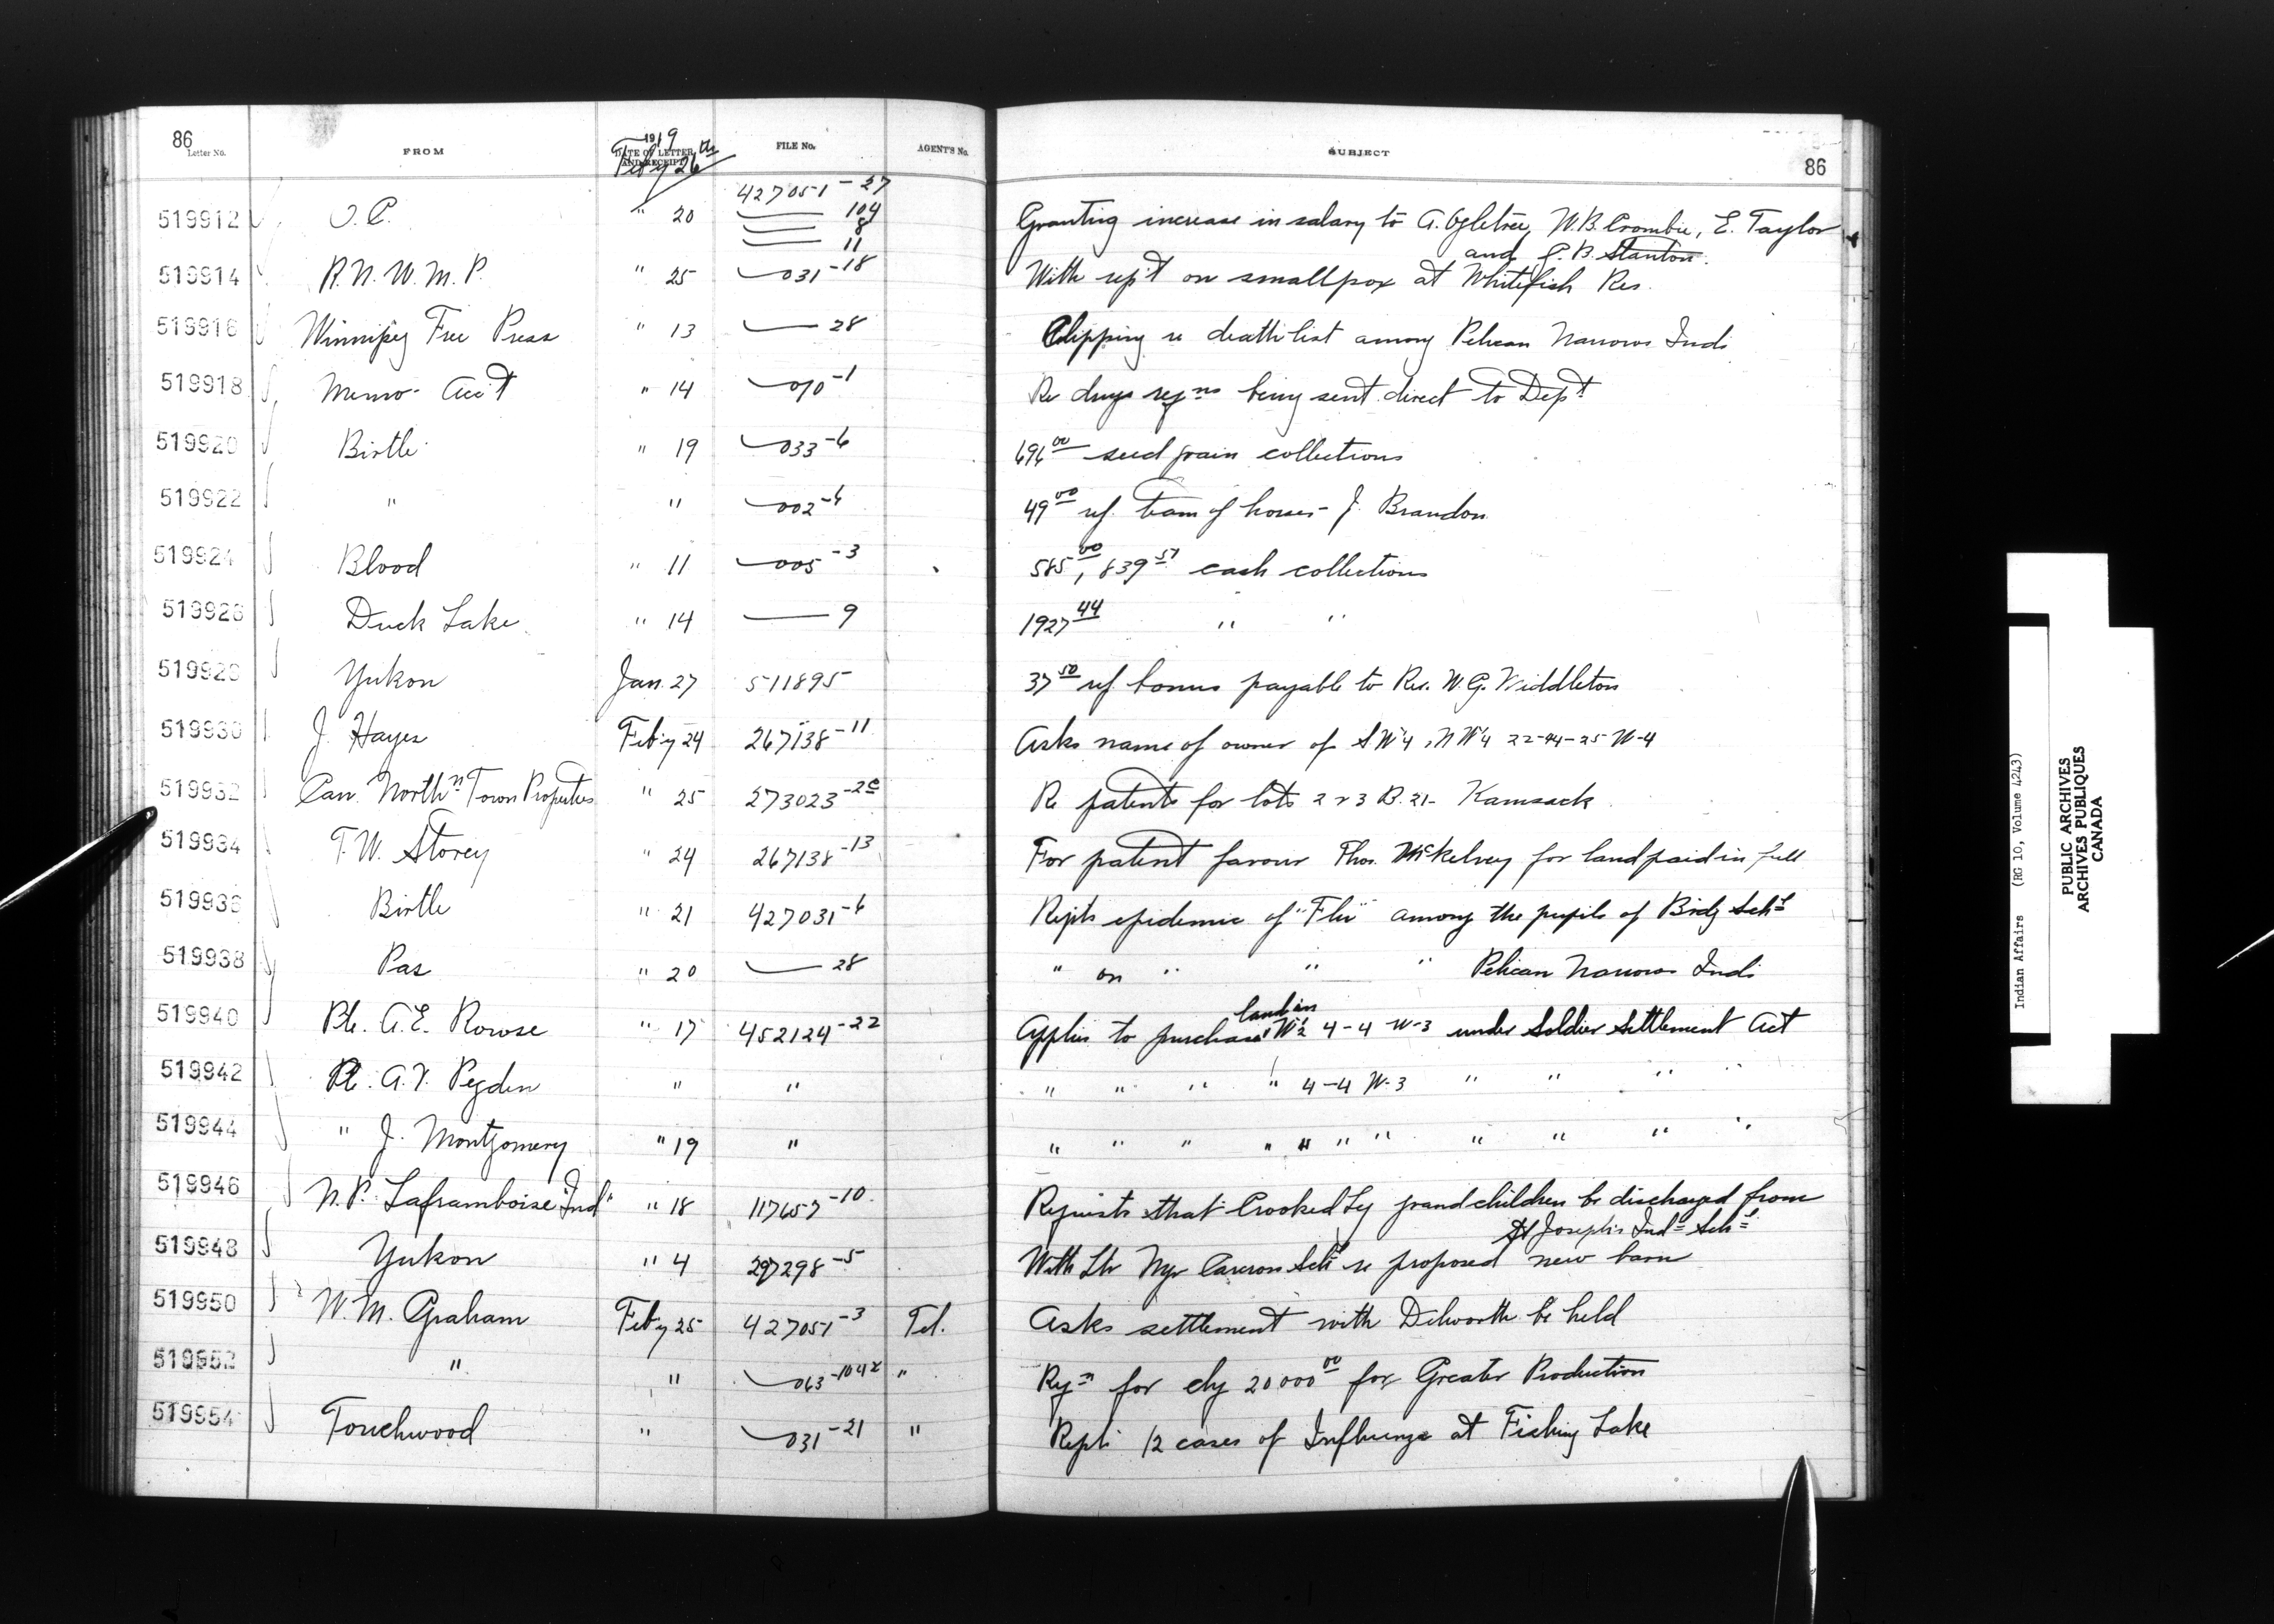 86
Letter No.
FROM
1919
DATE OF LETTER AND RECEIPT
Feb'y 26th
FILE No.
AGENT'S No.
SUBJECT
86
519912 O.C. " 20 427051-27 Granting increase in salary to A. Ogletree, W.B. Crombie, E. Taylor
—— 104
—— 8
—— 11 and C.B. Stanton.
519914 R.N.W.M.P. " 25 —031-18 With rep't on smallpox at Whitefish Res.
519916 Winnipeg Free Press " 13 —— 28 Clipping re death list among Pelican Narrows Inds
519918 Memo - Acc't " 14 —010-1 Re drugs reqns being sent direct to Dept
519920 Birtle " 19 —033-6 696 00 seed grain collections
519922 " " —002-6 49 00 rf. team of horses - J. Brandon
519924 Blood " 11 —005-3 585 00, 839 57 cash collections
519926 Duck Lake " 14 —— 9 1927 44 " "
519928 Yukon Jan. 27 511895 37 50 rf bonus payable to Rev. W.G.
519930 J. Hayes Feb'y 24 267138-11 Asks name of owner of SW 4, NW 4 22-44-25 W-4
519932 Can. Northn Town Properties " 25 273023-2c Re patents for lots 2 & 3 B. 21- Kamsack
519934 T.W. Storey " 24 267138-13 For patent favour Thos. McKelvey for land paid in full
519936 Birtle " 21 427031-6 Repts epidemic of "Flu" among the pupils of Brdg Schl
519938 Pas " 20 —— 28 " on " " " Pelican Narrows Inds
519940 Pte. A.E. Rowse " 17 452124-22 Applies to purchase land in W½ 4-4 W-3 under Soldier Settlement Act
519942 Pte. A.V. Pegden " " " " " " 4-4 W-3 " " " "
519944 " J. Montgomery " 19 " " " " " " " " " " " "
519946 N.P. Laframboise "Ind" " 18 117657-10 Requests that Crooked Leg grandchildren be discharged from
St Joseph's Indl Schl
519948 Yukon " 4 297298-5 With Ltr Mgr Carcross Schl re proposed new barn
519950 W.M. Graham Feb'y 25 427051-3 Tel. Asks settlement with Dilworth be held
519952 " " —063-104x " Rqn for chq 20000 00 for Greater Production
519954 Touchwood " —031-21 " Repts 12 cases of Influenza at Fishing Lake
Indian Affairs (RG 10, Volume 4243)
PUBLIC ARCHIVES
ARCHIVES PUBLIQUES
CANADA